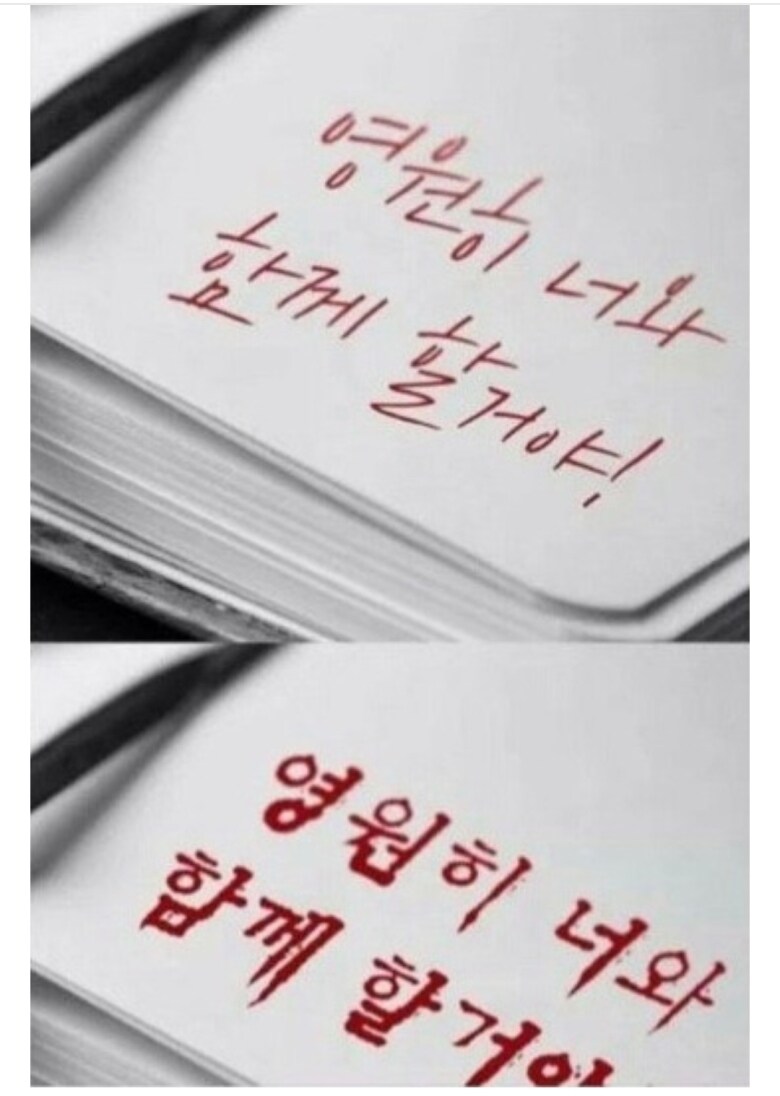 영원히 너와
함께 할거야!
영원히 너와
함께 할거